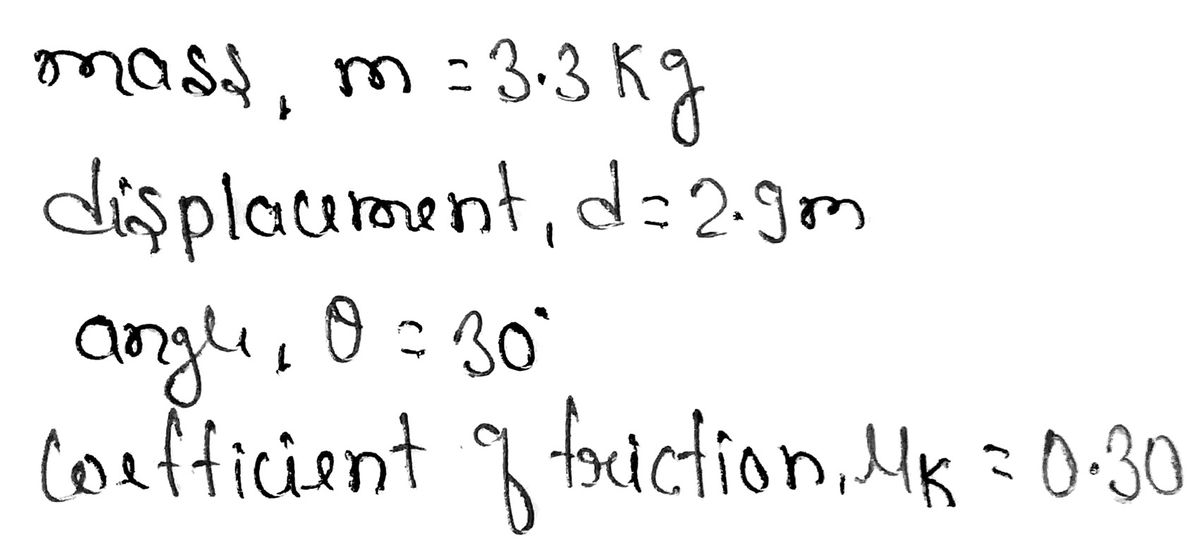 mass, m = 3.3 Kg
displacement, d = 2.9m
angle, θ = 30°
Coefficient of friction, μK = 0.30